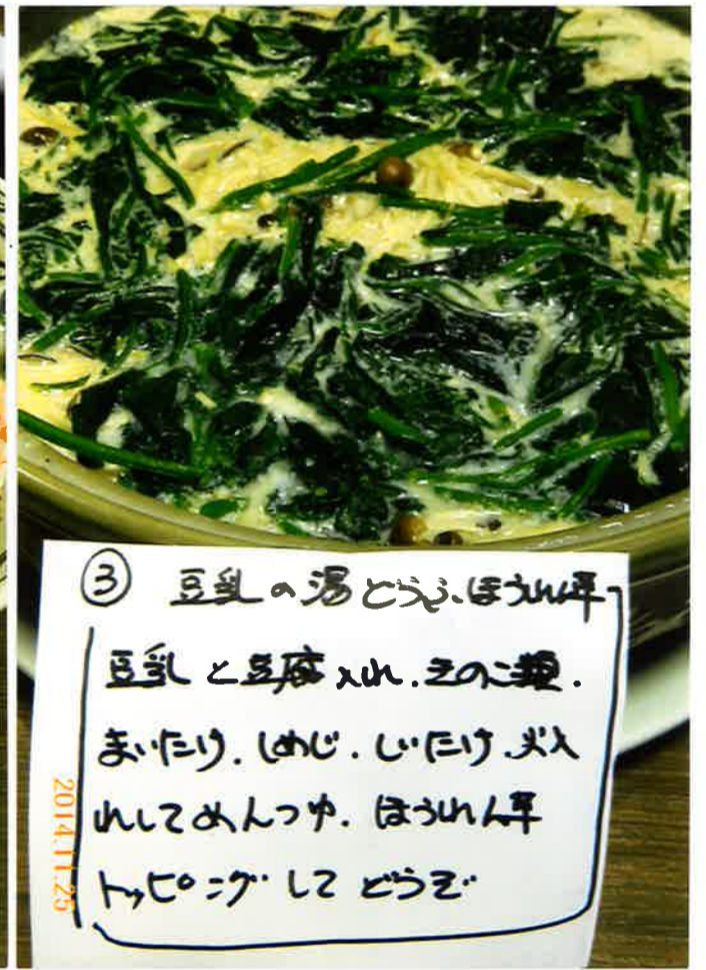 ③ 豆乳の湯どうふ.ほうれん草
豆乳と豆腐入れ.きのこ類.
まいたけ.しめじ.しいたけ.火入
れしてめんつゆ.ほうれん草
トッピングしてどうぞ
2014.11.25